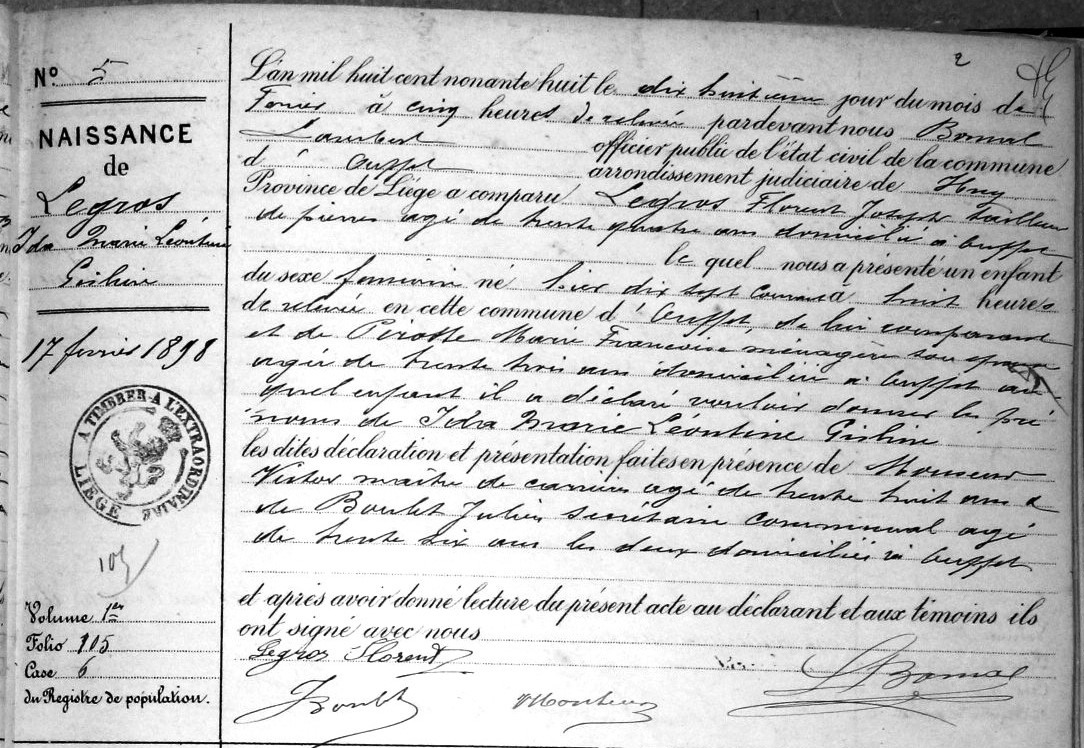 2
N° 5
NAISSANCE
de
Legros
Ida Marie Léontine
Gisline
17 février 1898
A TIMBRER A L'EXTRAORDINAIRE
LIÉGE
105
Volume 1er
Folio 105
Case 6
du Registre de population.
L'an mil huit cent nonante huit le dix huitième jour du mois de
Février à cinq heures de relevée pardevant nous Bomal
Lambert officier public de l'état civil de la commune
d'Ouffet arrondissement judiciaire de Huy
Province de Liége a comparu Legros Florent Joseph tailleur
de pierres agé de trente quatre ans domicilié à Ouffet
le quel nous a présenté un enfant
du sexe féminin né hier dix sept courant à huit heures
de relevée en cette commune d'Ouffet, de lui comparant
et de Pirotte Marie Françoise ménagère son épouse
agée de trente trois ans domiciliée à Ouffet au
quel enfant il a déclaré vouloir donner les pré
noms de Ida Marie Léontine Gisline
les dites déclaration et présentation faites en présence de
Victor maître de carrières agé de trente huit ans &
de Boulet Julien secrétaire communal agé
de trente six ans les deux domiciliés à Ouffet
et après avoir donné lecture du présent acte au déclarant et aux témoins ils
ont signé avec nous
Legros Florent
LBomal
JBoulet